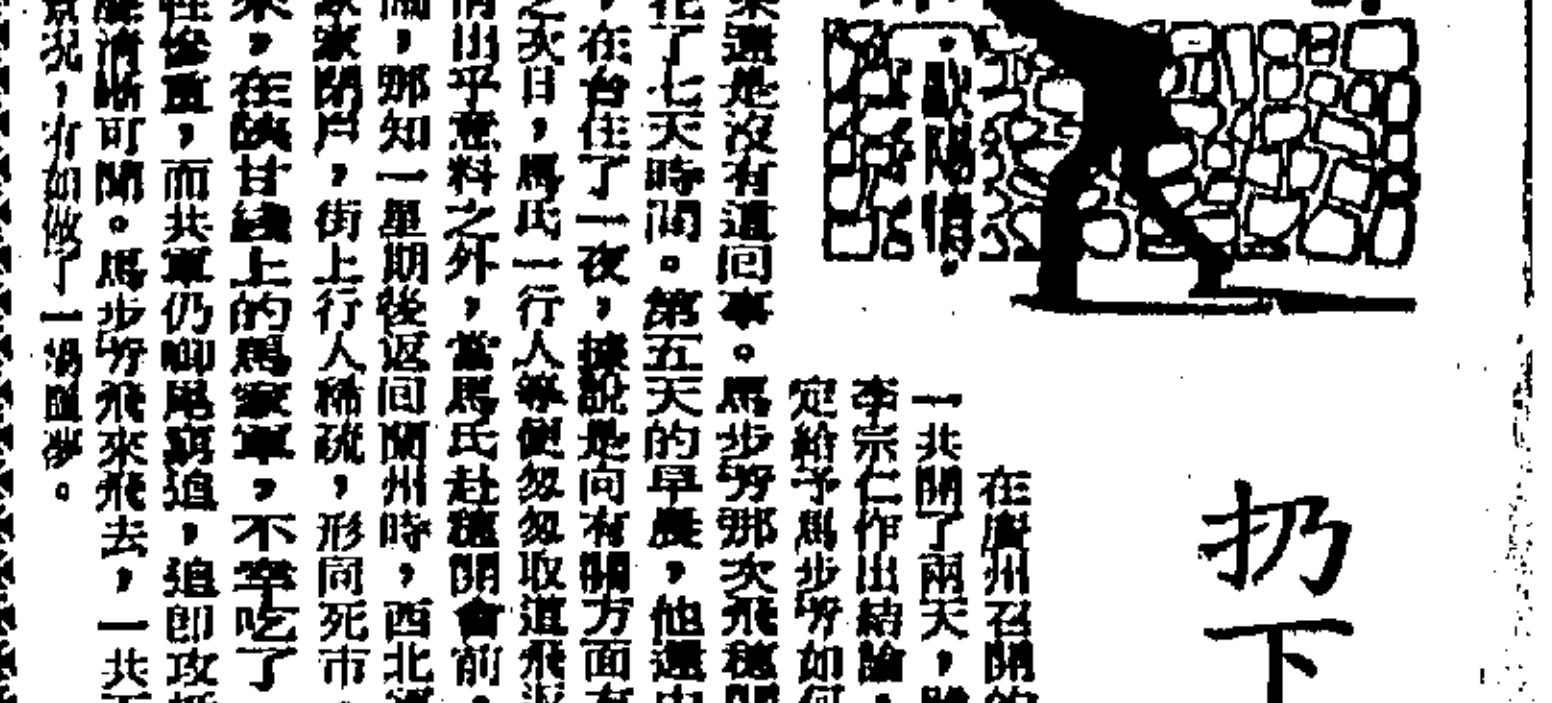 扔下
在廣州召開的
一共開了兩天，雖
李宗仁作出結論，
定給予馬步芳如何
還是沒有這回事。馬步芳那次飛穗開
花了七天時間。第五天的早晨，他還由
，在台住了一夜，據說是向有關方面有
之次日，馬氏一行人等便匆匆取道飛返
情出乎意料之外，當馬氏赴穗開會前，
鬧，那知一星期後返回蘭州時，西北軍
家家閉戶，街上行人稀疏，形同死市，
來，在陝甘綫上的馬家軍，不幸吃了
性慘重，而共軍仍啣尾窮追，追即攻抵
清晰可聞。馬步芳飛來飛去，一共不
景况，有如做了一場噩夢。
歐陽